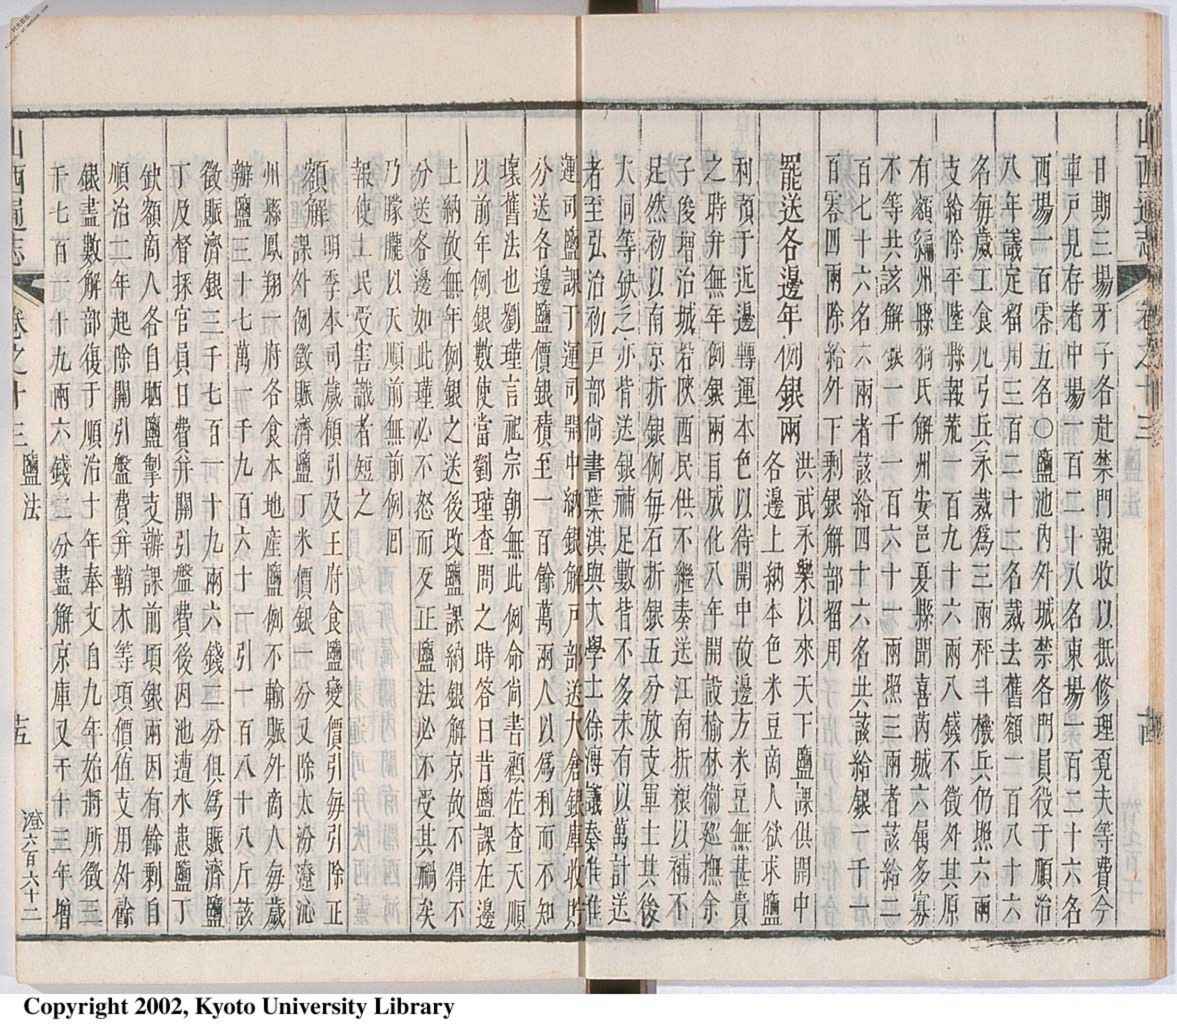 日期三場牙子各赴禁門親收以抵修理覔夫等費今
車戸見存者中場一百二十八名東場一百二十六名
西場一百零五名〇鹽池内外城禁各門員役于順治
八年議定留用三百二十二名裁去舊額一百八十六
名每歲工食九弓兵永裁爲三兩秤斗機兵仍照六兩
支給除平陸縣報荒一百九十六兩八錢不徵外其原
有額編州縣猗氏解州安邑夏縣聞喜芮城六屬多寡
不等共該解銀一千一百六十一兩照三兩者該給二
百七十六名六兩者該給四十六名共該給銀一千一
百零四兩除給外下剩銀解部留用
罷送各邊年例銀兩
洪武永樂以來天下鹽課俱開中
各邊上納本色米豆商人欲求鹽
利預于近邊轉運本色以待開中故邊方米豆無甚貴
之時并無年例銀兩自成化八年開設榆林衞廵撫余
子俊增治城砦陝西民供不繼奏送江南折粮以補不
足然初以南京折銀例每石折銀五分放支軍士其後
大同等缺乏亦皆送銀補足數皆不多未有以萬計送
者至弘治初戸部尚書葉淇與大學士徐溥議奏准
運司鹽課于運司開中納銀解戸部送大倉銀庫收貯
分送各邊鹽價銀積至一百餘萬兩人以爲利而不知
壞舊法也劉瑾言祖宗朝無此例命尚書顧佐查天順
以前年例銀數使當劉瑾查問之時答曰昔鹽課在邊
上納故無年例銀之送後改鹽課納銀解京故不得不
分送各邊如此瑾必不怒而反正鹽法必不受其禍矣
乃朦朧以天順前無前例囘
報使士民受害識者短之
額解
明季本司歲領引及王府食鹽變價引每引除正
課外例徵賑濟鹽丁米價銀一分又除太汾遼沁
州縣鳳翔一府各食本地産鹽例不輸賑外商人每歲
辦鹽三十七萬一千九百六十一引一百八十八斤該
徵賑濟銀三千七百一十九兩六錢二分俱爲賑濟鹽
丁及督採官員日費并關引盤費後因池遭水患鹽丁
缺額商人各自晒鹽掣支辦課前項銀兩因有餘剩自
順治二年起除關引盤費并鞘木等項價值支用外餘
銀盡數解部復于順治十年奉文自九年始將所徵三
千七百一十九兩六錢二分盡解京庫又于十三年增
山西通志
卷之十三
鹽法
十五
山西通志
卷之十三